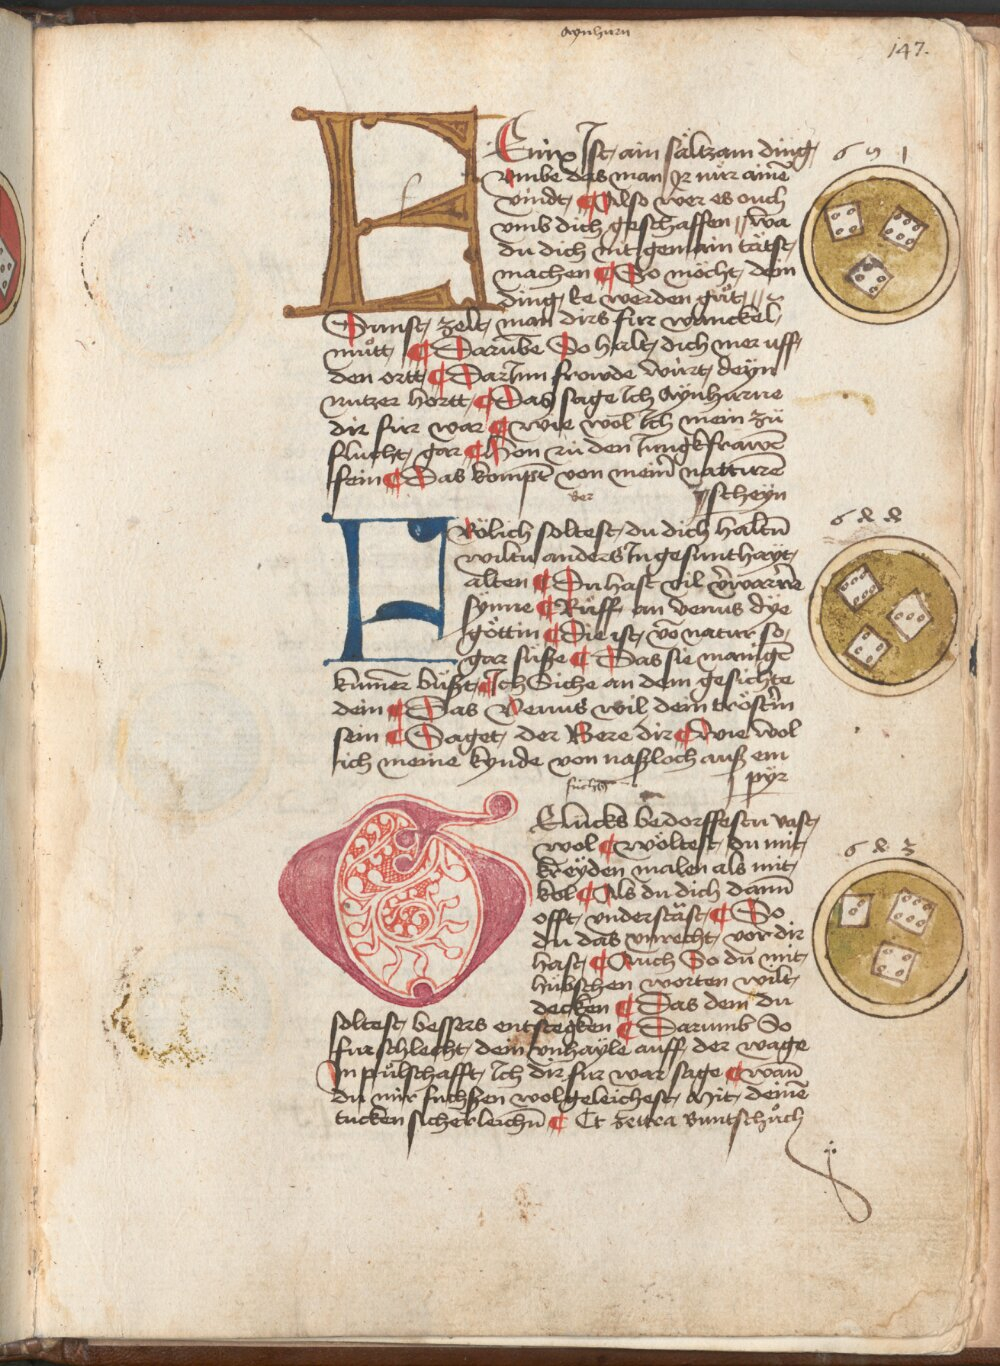 Aynhurn
147.
Enix Ist ain sältzam ding
vmbe das man Ir nür ainē
vindt ¶ Also wer es ouch
vmb dich geschaffen // wa
du dich nit gemain tätst
machen ¶ So möcht dem
ding ke werden gůt //
Sunst zelt man dirs für wanckel
můtt ¶ Darūbe So halt dich mer uff
den ortt ¶ Dar Inn frowde würt deyn
nutzer hortt ¶ Das sage Ich Aynhurne
dir für war ¶ wie wol Ich mein zů
flucht gar ¶ Hon zů den Jungkfrawē
sein ¶ Das kompt von meim̄ natturē
scheyn
6 5 1
ber
Rölich soltest du dich haltn̄
wiltu anders In gesunthayt
alten ¶ Du hast vil verworrē
synne ¶ Rüff an venus dye
göttin ¶ Die ist vō natur so
gar süße ¶ Das sie manigē
kumer büßt ¶ Ich Siche an dem gesichte
dein ¶ Das Venus wil dein tröstrin
sein ¶ Saget der Bere dir ¶ wie wol
ich meine kynde von naßloch auß em
pyr
6 4 4
fuchß
Glücks bedorffestu vast
wol ¶ wöltest du mit
kreyden malen als mit
kol ¶ Als du dich dann
offt vnderstäst ¶ So
du das vnrecht vor dir
hast ¶ Auch So du mit
hübschen worten wilt
decken ¶ Das dem du
soltest bessers entstegken ¶ Darumb So
fur schlecht dein vnhayle auff der wage
In pülschafft Ich dir für war sage ¶ wan̄
du mir fuchßen wol geleichest Mit deinē
tucken sicherleichn̄ ¶ Et zettra Buntschůch
6 4 3